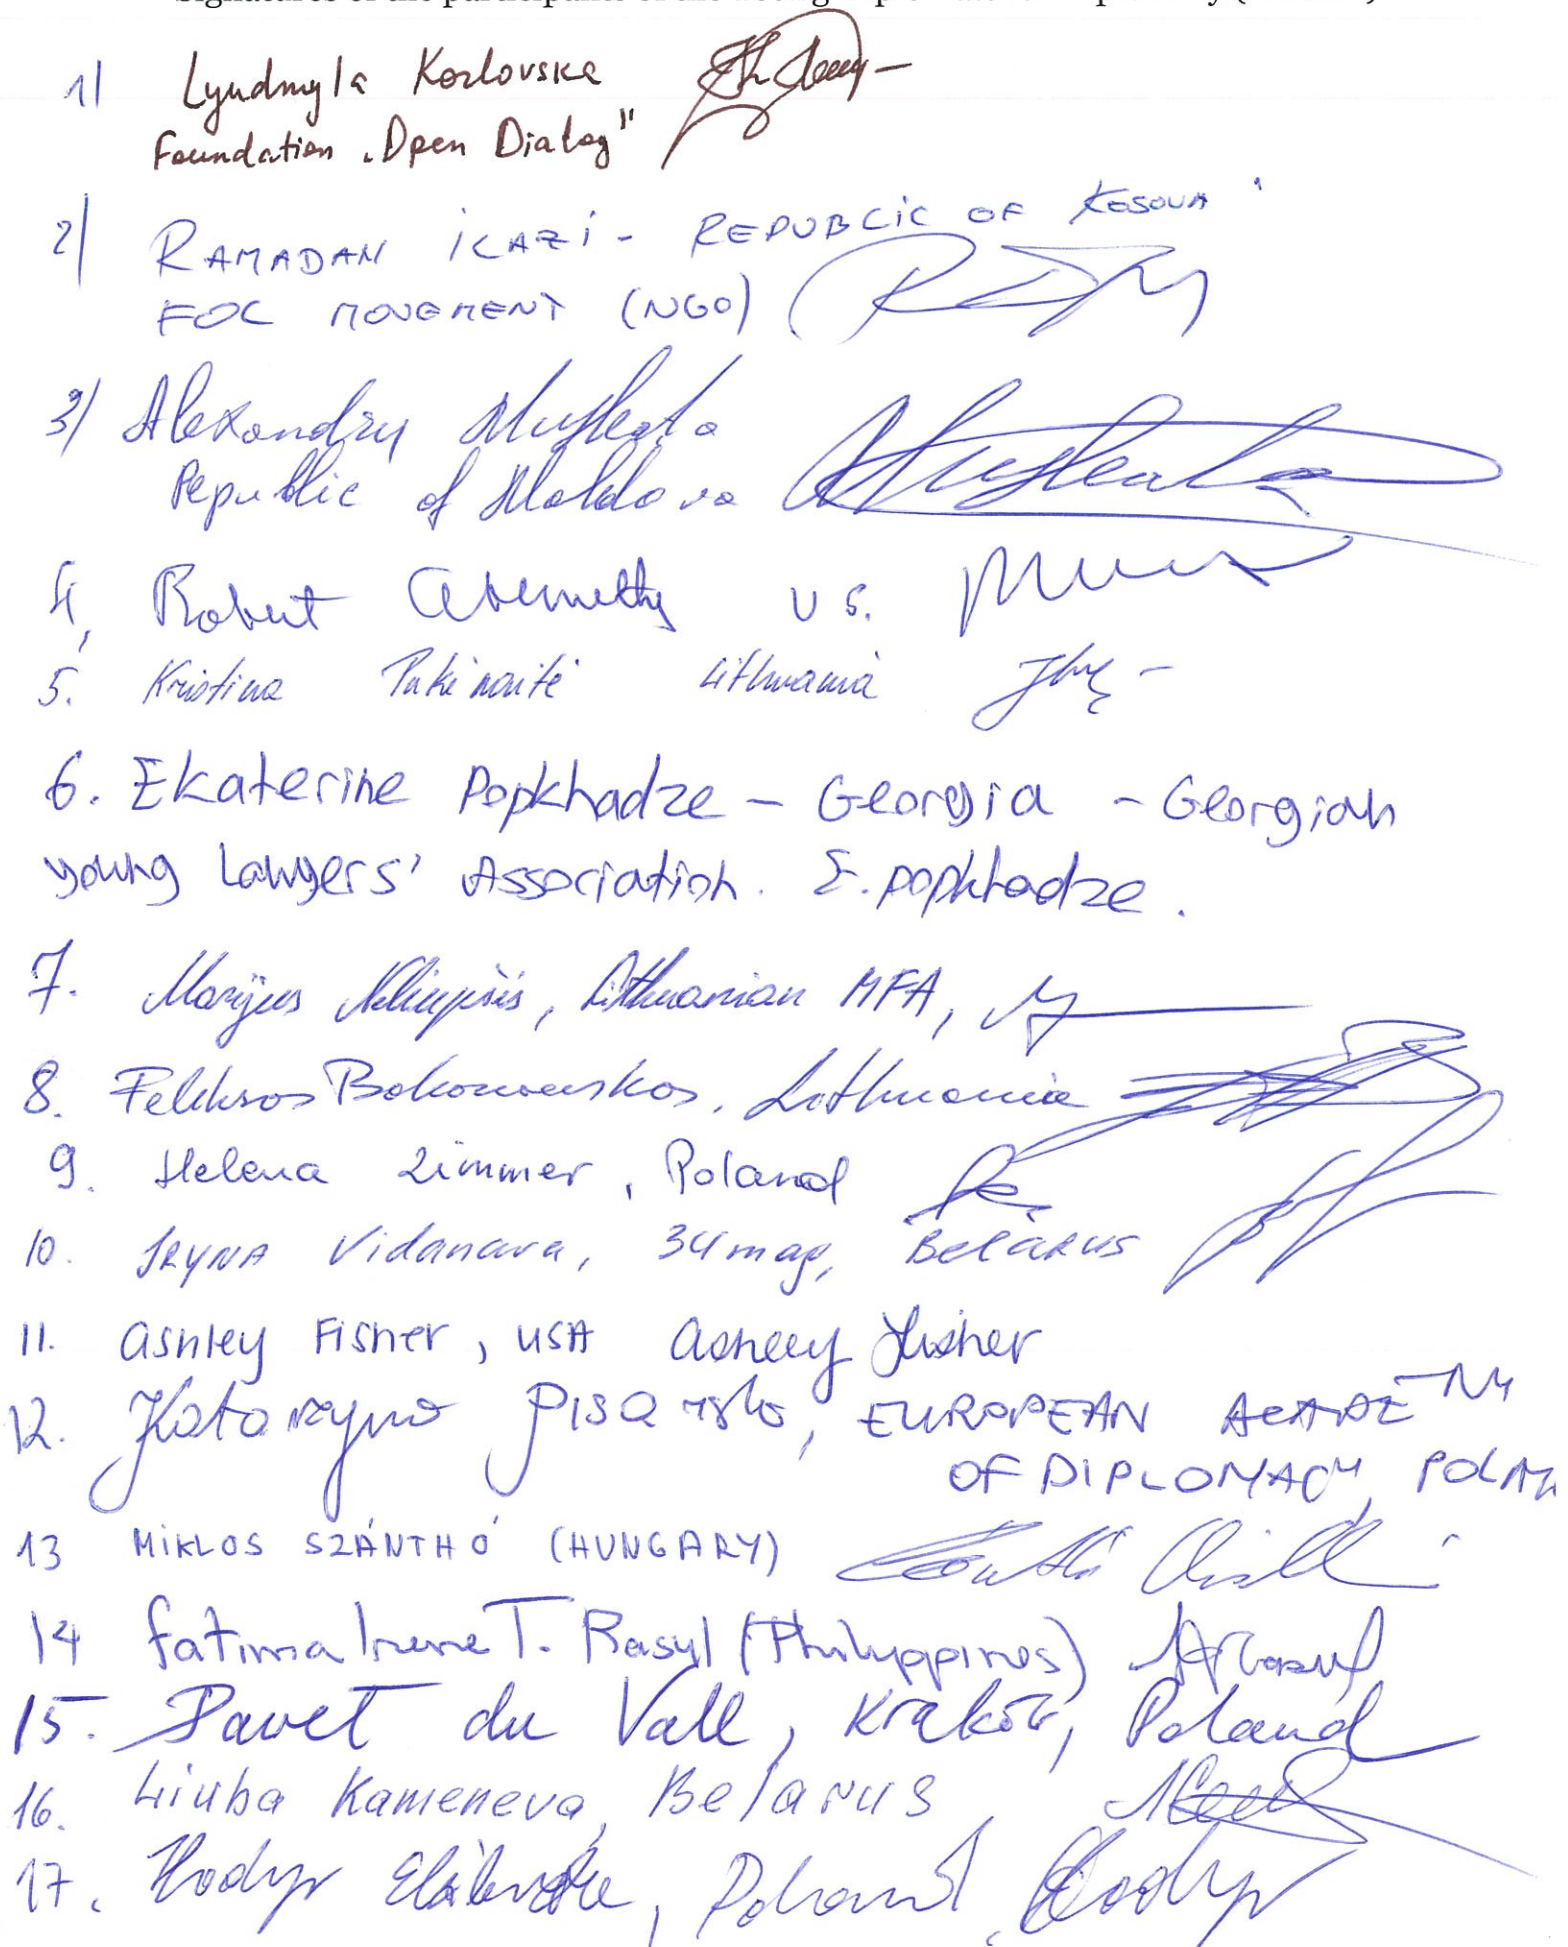 1) Lyudmyla Kozlovska
Foundation „Open Dialog"
2) RAMADAN iLAZi - REPUBLiC OF KOSOVA
FOL MOVEMENT (NGO)
3) Alexandru
Republic of Moldova
4, Robert Abernethy U S.
5. Kristina Lithuania
6. Ekaterine Popkhadze – Georgia – Georgian
young Lawyers' Association. E. popkhadze.
7. Marijus , Lithuanian MFA,
8. Feliksas , Lithuania
9. Helena Zimmer, Poland
10. IRYNA Vidanava, 34mag, BELARUS
11. ashley Fisher, USA Ashley Fisher
12. Katarzyna Pisarska, EUROPEAN ACADEMY
OF DIPLOMACY,
13 MiKLOS SZÁNTHÓ (HUNGARY)
14 Fatima Irene T. Rasul (Philippines)
15. Paweł du Vall, Kraków, Poland
16. Liuba Kameneva, Belarus
17. Elżbieta, Poland,